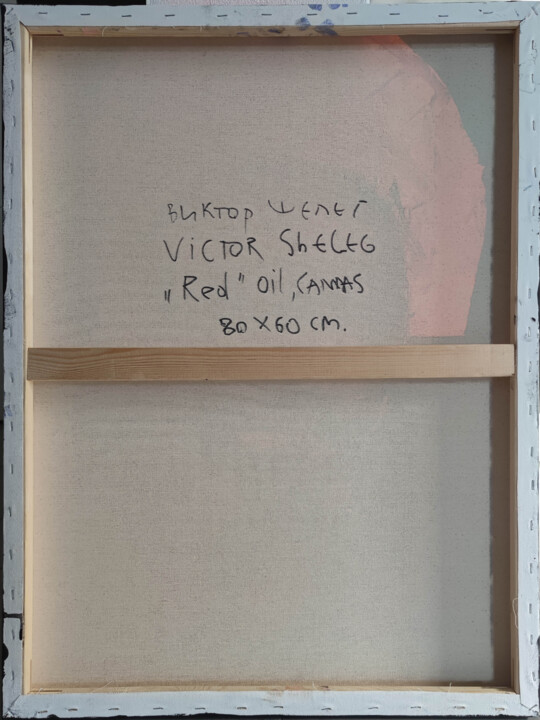 Виктор Шелег
VICTOR ShELEG
„Red" Oil, CANVAS
80 X 60 CM.